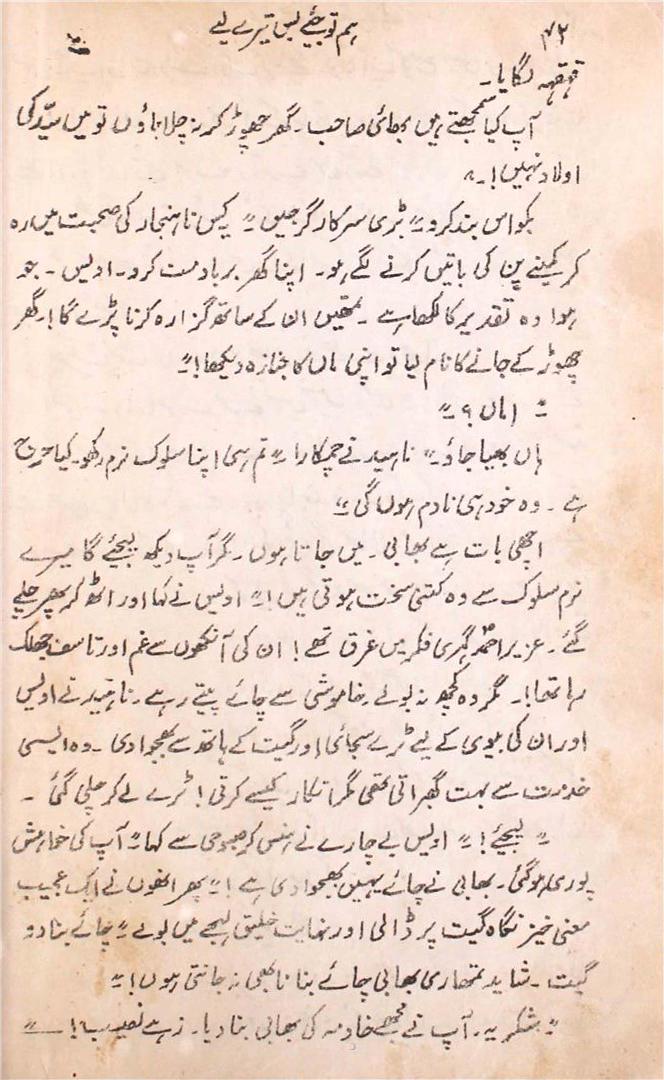 ۴۲ ہم تو جئے بس تیرے لیے
قہقہہ لگایا۔
آپ کیا سمجھتے ہیں بھائی صاحب۔ گھر چھوڑ کر نہ چلا جاؤں تو میں سیّد کی
اولاد نہیں!۔"
بکواس بند کرو۔" بڑی سرکار گرجیں۔" کِس ناہنجار کی صحبت میں رہ
کر کمینے پن کی باتیں کرنے لگے ہو۔ اپنا گھر برباد مت کرو۔ اویس۔ جو
ہوا وہ تقدیر کا لکھا ہے۔ تمھیں ان کے ساتھ گزارہ کرنا پڑے گا! گھر
چھوڑ کے جانے کا نام لیا تو اپنی ماں کا جنازہ دیکھا!۔"
" اماں؟۔"
ہاں بھیا جاؤ۔" ناہید نے چمکارا۔" تم ہی اپنا سلوک نرم رکھو۔ کیا حرج
ہے۔ وہ خود ہی نادم ہوں گی۔"
اچھی بات ہے بھابی۔ میں جاتا ہوں۔ مگر آپ دیکھ لیجئے گا میرے
نرم سلوک سے وہ کتنی سخت ہوتی ہیں!۔" اویس نے کہا اور اٹھ کر پھر چلے
گئے۔ عزیز احمد گہری فکر میں غرق تھے! ان کی آنکھوں سے غم اور تاسف جھلک
رہا تھا!۔ مگر وہ کچھ نہ بولے۔ خاموشی سے چائے پیتے رہے۔ ناہید نے اویس
اور ان کی بیوی کے لیے ٹرے سجائی اور گیت کے ہاتھ سے بھجوا دی۔ وہ ایسی
خدمت سے بہت گھبراتی تھی مگر انکار کیسے کرتی! ٹرے لے کر چلی گئی۔
" لیجئے!۔" اویس بے چارے نے ہنس کر صبوحی سے کہا۔" آپ کی خواہش
پوری ہو گئی۔ بھابی نے چائے یہیں بھجوا دی ہے!۔" پھر انھوں نے ایک عجیب
معنی خیز نگاہ گیت پر ڈالی اور نہایت خلیق لہجے میں بولے۔" چائے بنا دو
گیت۔ شاید تمھاری بھابی چائے بنانا بھی نہ جانتی ہوں!۔"
" شکریہ۔ آپ نے مجھے خادمہ کی بھابی بنا دیا۔ زہے نصیب!۔"